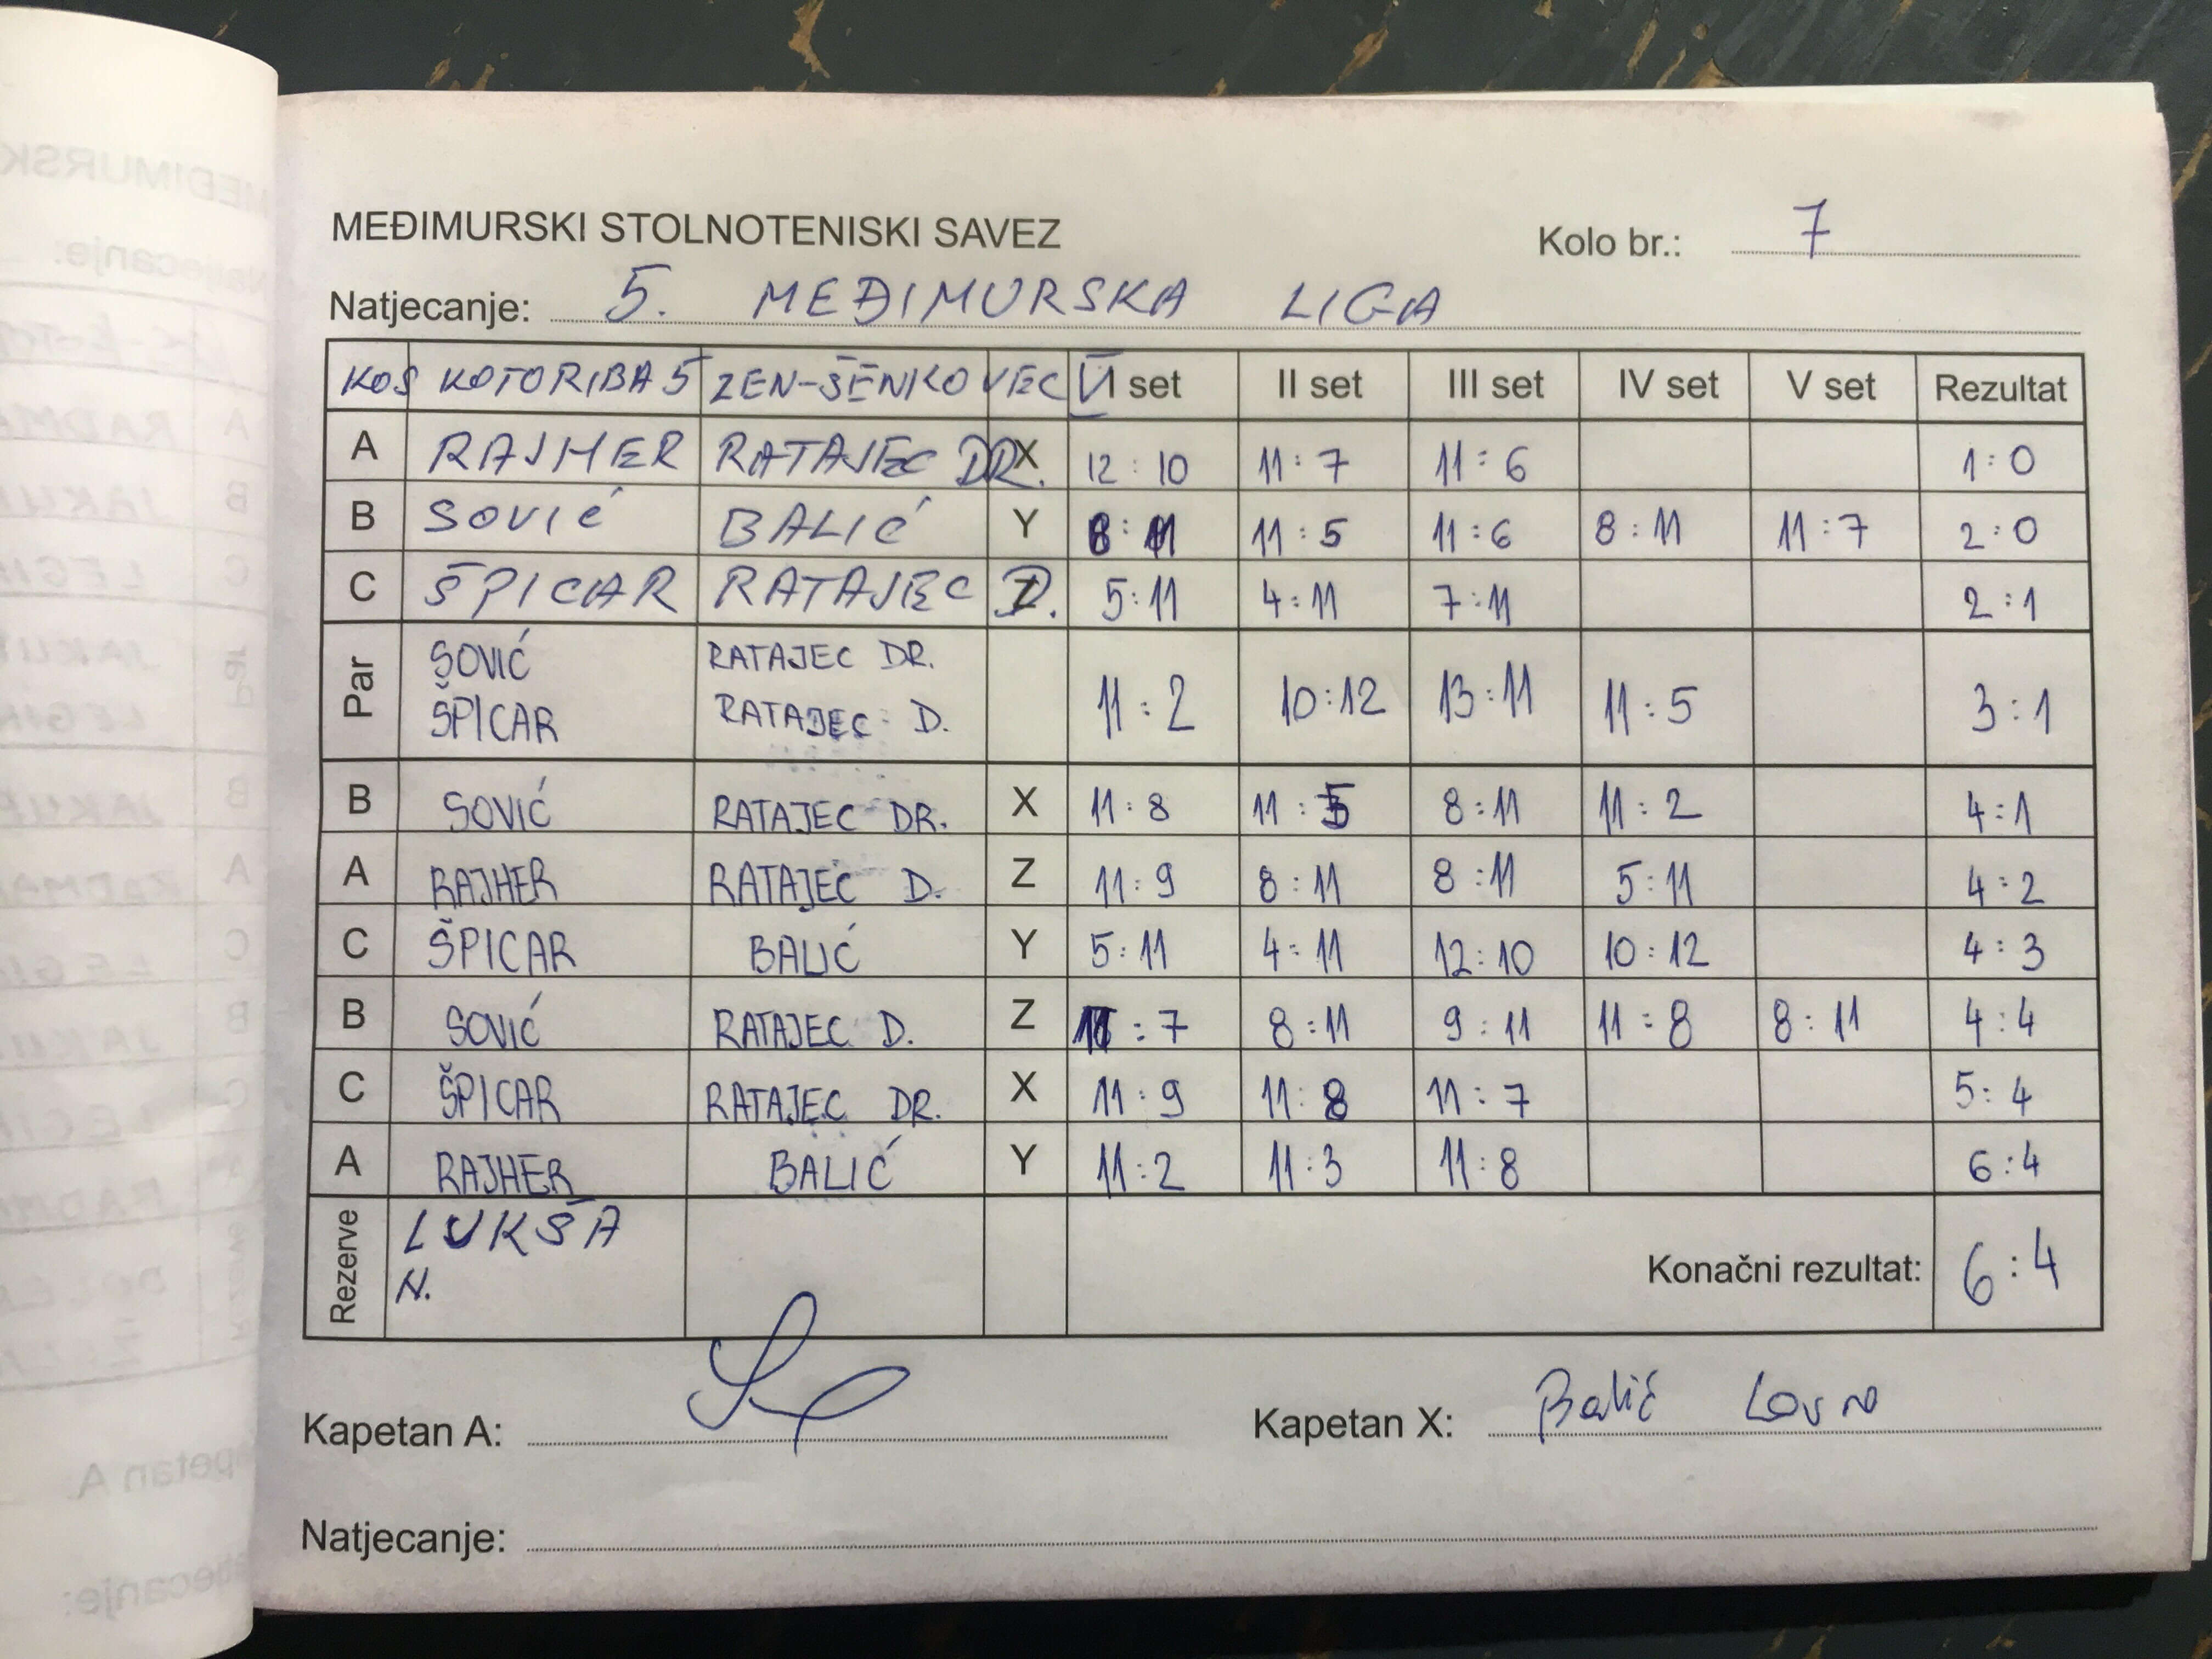 MEĐIMURSKI STOLNOTENISKI SAVEZ Kolo br.: 7
Natjecanje: 5. MEĐIMURSKA LIGA
KOS KOTORIBA 5 ZEN-ŠENKOVEC VI set II set III set IV set V set Rezultat
A RAJHER RATAJEC DR. X 12:10 11:7 11:6 1:0
B SOVIĆ BALIĆ Y 8:11 11:5 11:6 8:11 11:7 2:0
C ŠPICAR RATAJEC D. Z 5:11 4:11 7:11 2:1
Par SOVIĆ RATAJEC DR. 11:2 10:12 13:11 11:5 3:1
ŠPICAR RATAJEC D.
B SOVIĆ RATAJEC DR. X 11:8 11:5 8:11 11:2 4:1
A RAJHER RATAJEC D. Z 11:9 8:11 8:11 5:11 4:2
C ŠPICAR BALIĆ Y 5:11 4:11 12:10 10:12 4:3
B SOVIĆ RATAJEC D. Z 11:7 8:11 9:11 11:8 8:11 4:4
C ŠPICAR RATAJEC DR. X 11:9 11:8 11:7 5:4
A RAJHER BALIĆ Y 11:2 11:3 11:8 6:4
Rezerve LUKŠA Konačni rezultat: 6:4
N.
Kapetan A: Kapetan X: Balić
Natjecanje: